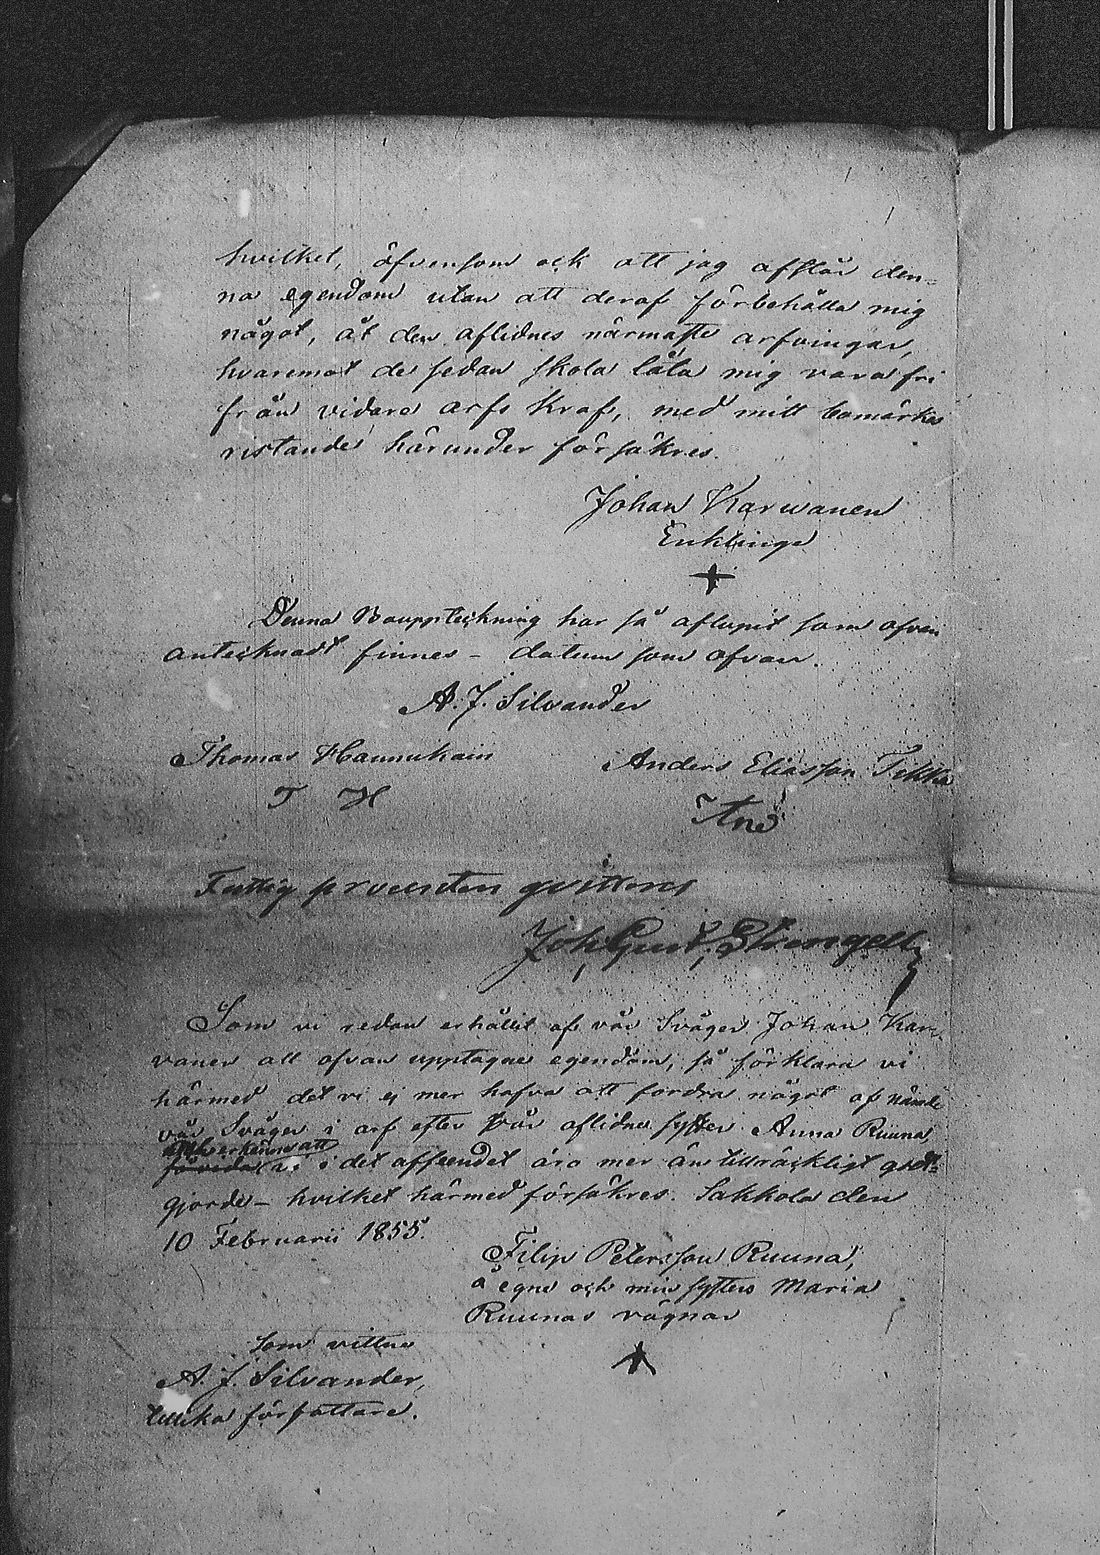 hvilket, äfvensom ock att jag afstår den-
na egendom utan att deraf förbehålla mig
något, åt den aflidnes närmaste arfvingar,
hvaremot de sedan skola låta mig vara fri
från vidare arfs kraf, med mitt bomärkes
ristande härunder försäkres.
Johan Karwanen
Enklinge
Denna Bouppteckning har så aflupit som ofvan
antecknadt finnes – datum som ofvan.
A. J. Silvander
Thomas Hannukain
Anders Eliasson Tikka
T H
Fattig procenten qvitteras
Joh. Gust. Strengell
Som vi redan erhållit af vår Svåger Johan Kar-
vanen all ofvan upptagne egendom, så förklara vi
härmed det vi ej mer hafva att fordra något af nämde
vår Svåger i arf efter vår aflidne syster Anna Ruuna,
och erkänna att
vi i det afseendet äro mer än tillräckligt godt-
gjorde – hvilket härmed försäkres. Sakkola den
10 Februarii 1855.
Filip Petersson Ruuna,
å egne och min systers Maria
Ruunas vägnar
Som vittne
A. J. Silvander,
tillika författare.